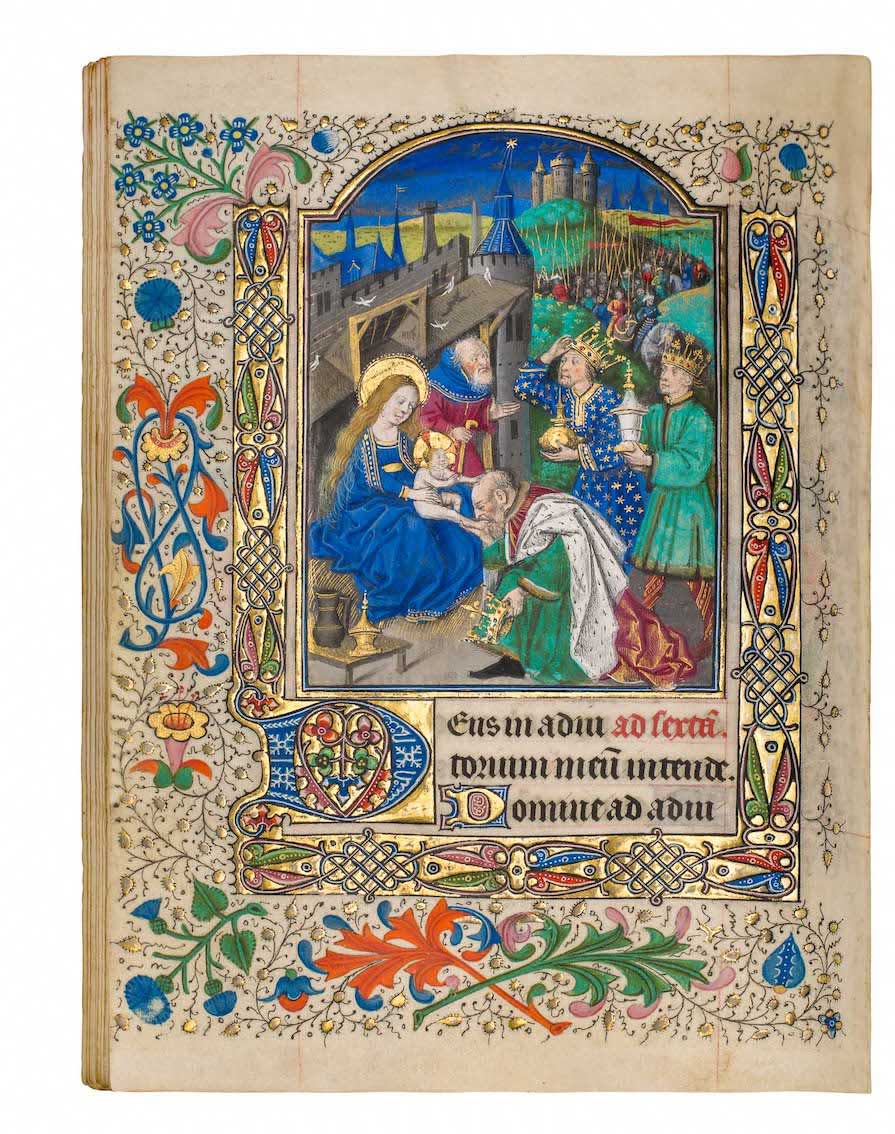 Deus in adiu ad sextā.
torium meū intende.
Domine ad adiu